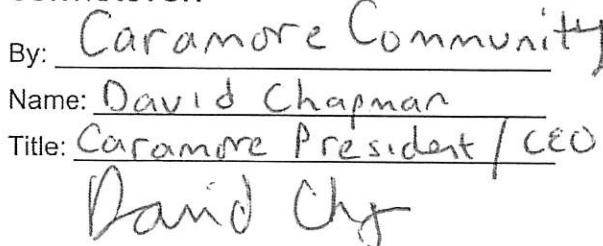 By: Caramore Community
Name: David Chapman
Title: Caramore President / CEO
David Ch